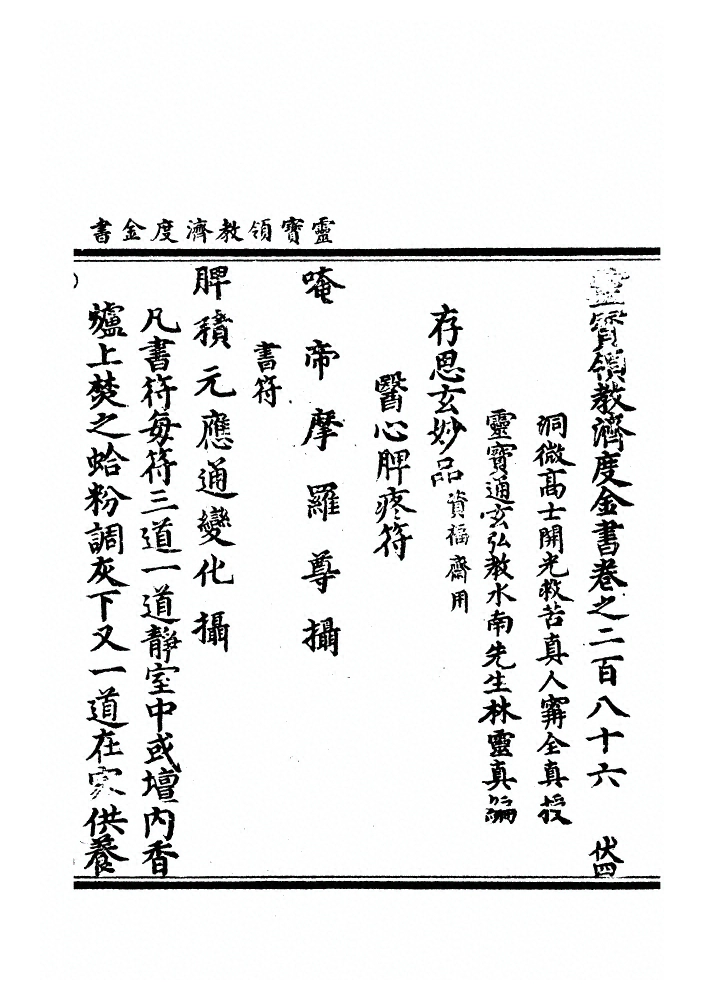 靈寶領教濟度金書
靈寶領教濟度金書卷之二百八十六 伏四
洞微高士開光救苦真人甯全真授
靈寶通玄弘教水南先生林靈真編
存思玄妙品 資福齋用
醫心脾疼符
唵帝摩羅尊攝
書符
脾積元應通變化攝
凡書符每符三道一道靜室中或壇內香
爐上焚之蛤粉調灰下又一道在家供養